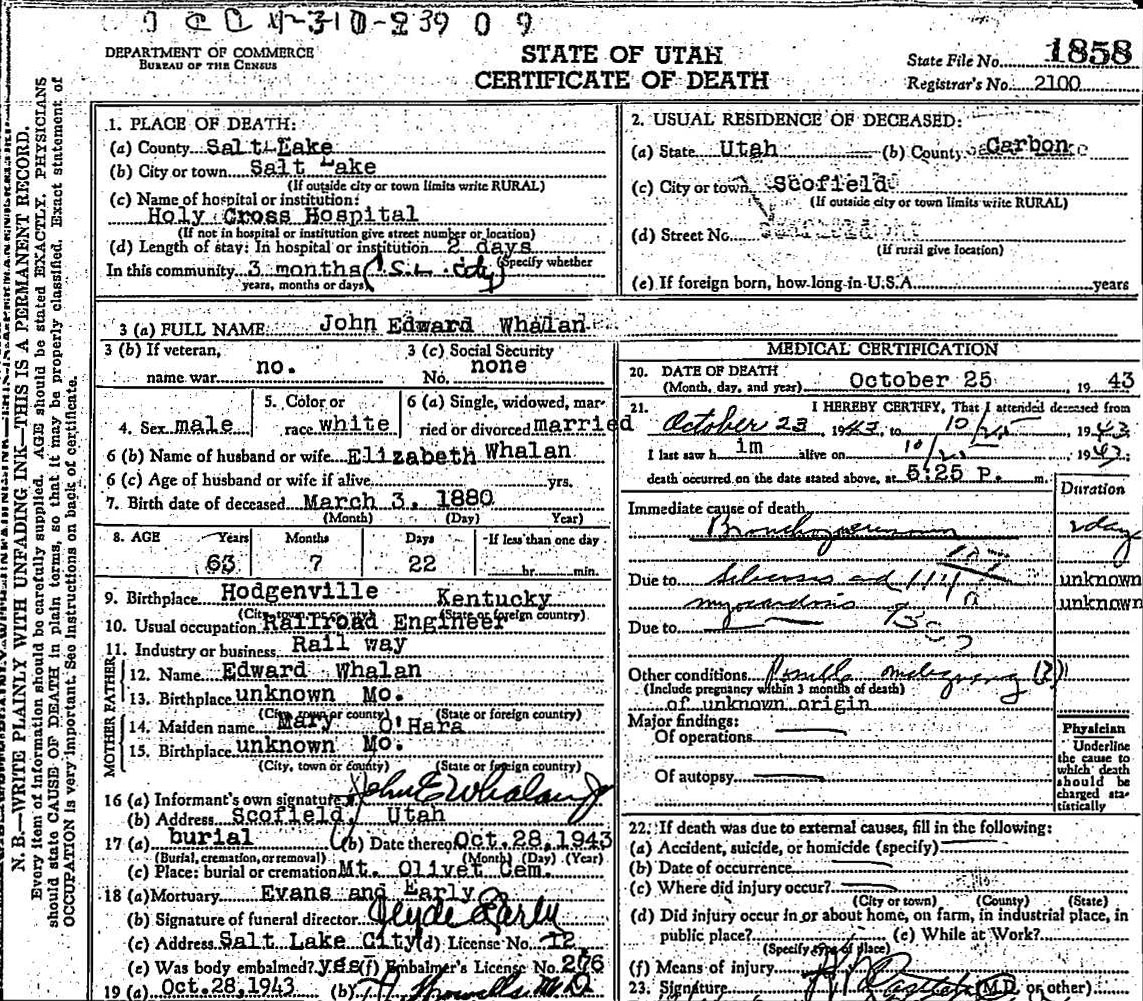 39 0 9
DEPARTMENT OF COMMERCE
BUREAU OF THE CENSUS
STATE OF UTAH
CERTIFICATE OF DEATH
State File No. 1858
Registrar's No. 2100
N. B.—WRITE PLAINLY WITH UNFADING INK—THIS IS A PERMANENT RECORD.
Every item of information should be carefully supplied. AGE should be stated EXACTLY. PHYSICIANS
should state CAUSE OF DEATH in plain terms, so that it may be properly classified. Exact statement of
OCCUPATION is very important. See Instructions on back of certificate.
1. PLACE OF DEATH:
(a) County Salt Lake
(b) City or town Salt Lake
(If outside city or town limits write RURAL)
(c) Name of hospital or institution:
Holy Cross Hospital
(If not in hospital or institution give street number or location)
(d) Length of stay: In hospital or institution 2 days
(Specify whether
In this community 3 months (S.L. City)
years, months or days)
2. USUAL RESIDENCE OF DECEASED:
(a) State Utah (b) County Carbon
(c) City or town Scofield
(If outside city or town limits write RURAL)
(d) Street No.
(If rural give location)
(e) If foreign born, how long in U.S.A. years
3 (a) FULL NAME John Edward Whalan
3 (b) If veteran,
name war no.
3 (c) Social Security
No. none
4. Sex male
5. Color or
race white
6 (a) Single, widowed, mar-
ried or divorced married
6 (b) Name of husband or wife Elizabeth Whalan
6 (c) Age of husband or wife if alive yrs.
7. Birth date of deceased March 3, 1880
(Month) (Day) Year)
8. AGE Years Months Days If less than one day
63 7 22 hr. min.
9. Birthplace Hodgenville Kentucky
(City, town or county) (State or foreign country)
10. Usual occupation Railroad Engineer
11. Industry or business Rail way
FATHER
12. Name Edward Whalan
13. Birthplace unknown Mo.
(City, town or county) (State or foreign country)
MOTHER
14. Maiden name Mary O'Hara
15. Birthplace unknown Mo.
(City, town or county) (State or foreign country)
16 (a) Informant's own signature John E Whalan Jr
(b) Address Scofield, Utah
17 (a) burial (b) Date thereof Oct. 28, 1943
(Burial, cremation, or removal) (Month) (Day) (Year)
(c) Place: burial or cremation Mt. Olivet Cem.
18 (a) Mortuary Evans and Early
(b) Signature of funeral director Clyde Early
(c) Address Salt Lake City (d) License No. 12
(e) Was body embalmed? yes (f) Embalmer's License No. 276
19 (a) Oct. 28, 1943 (b) M.D.
MEDICAL CERTIFICATION
20. DATE OF DEATH
(Month, day, and year) October 25 1943
21. I HEREBY CERTIFY, That I attended deceased from
October 23, 1943, to 10/25 1943
I last saw him alive on 10/25 1943;
death occurred on the date stated above, at 5:25 P. m.
Duration
Immediate cause of death
Bronchopneumonia 2 day
Due to Silicosis and 114 unknown
myocardosis unknown
Due to
Other conditions Possible malignancy (?)
(Include pregnancy within 3 months of death)
of unknown origin
Major findings:
Of operations
Of autopsy
Physician
Underline
the cause to
which death
should be
charged sta-
tistically
22. If death was due to external causes, fill in the following:
(a) Accident, suicide, or homicide (specify)
(b) Date of occurrence
(c) Where did injury occur?
(City or town) (County) (State)
(d) Did injury occur in or about home, on farm, in industrial place, in
public place? (e) While at Work?
(Specify type of place)
(f) Means of injury
23. Signature (M.D. or other)